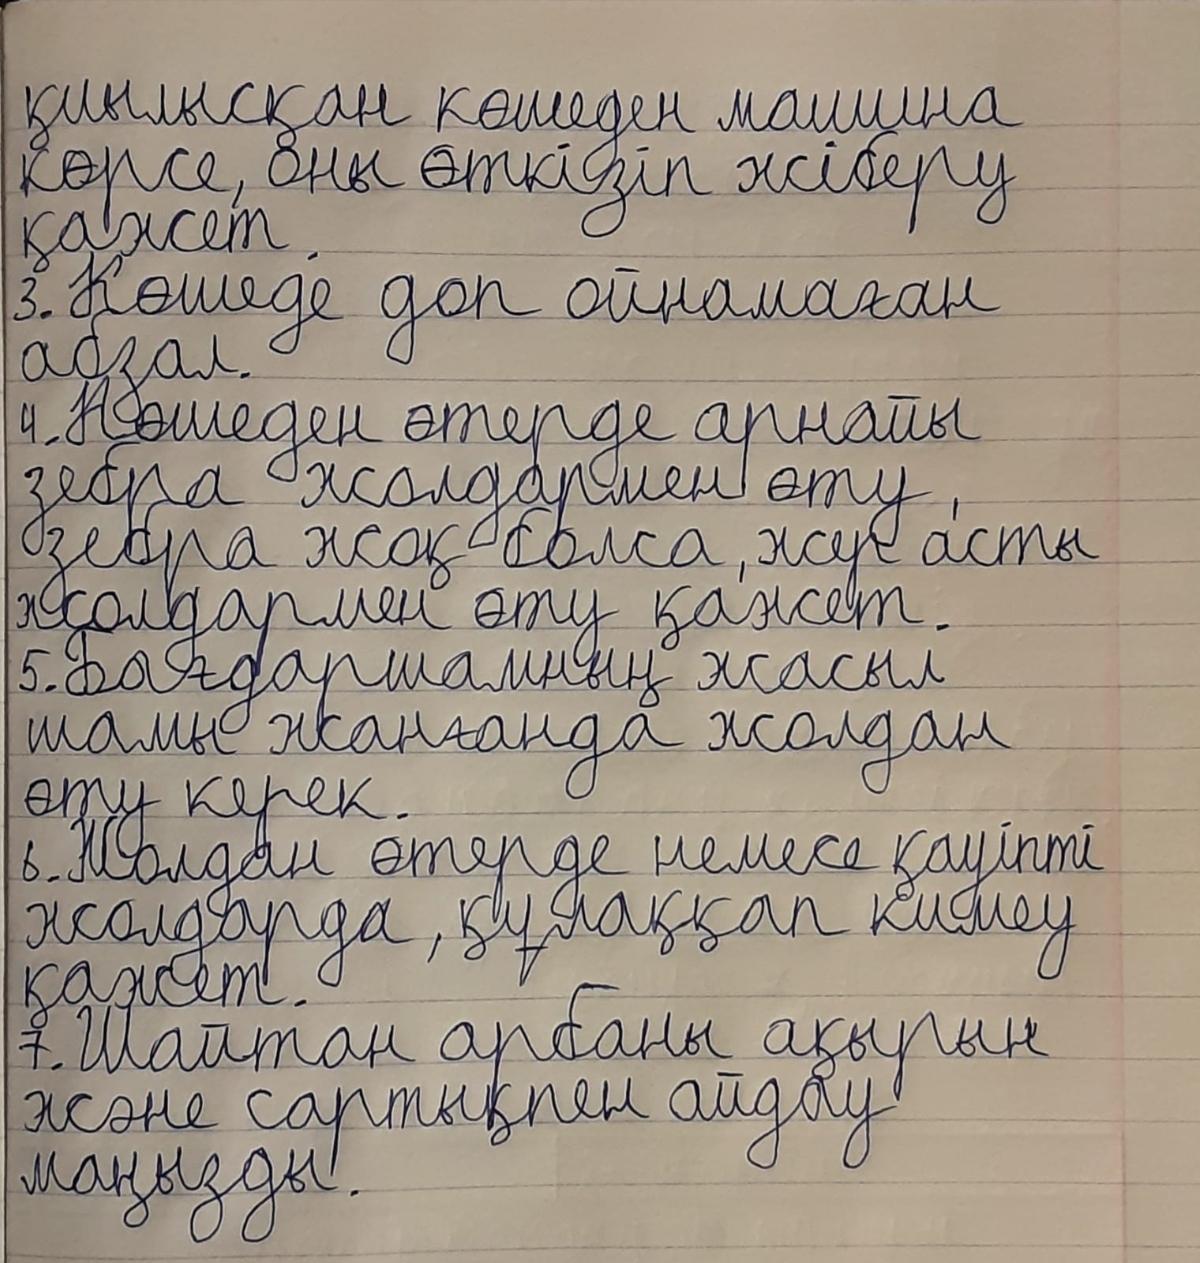 қиылысқан көшеден машина
көрсе, оны өткізіп жіберу
қажет.
3. Көшеде доп ойнамаған
абзал.
4. Көшеден өтерде арнайы
зебра жолдармен өту,
зебра жоқ болса, жер асты
жолдармен өту қажет.
5. Бағдаршамның жасыл
шамы жанғанда жолдан
өту керек.
6. Жолдан өтерде немесе қауіпті
жолдарда, құлаққап кимеу
қажет.
7. Шайтан арбаны ақырын
және сартықпен айдау
маңызды.